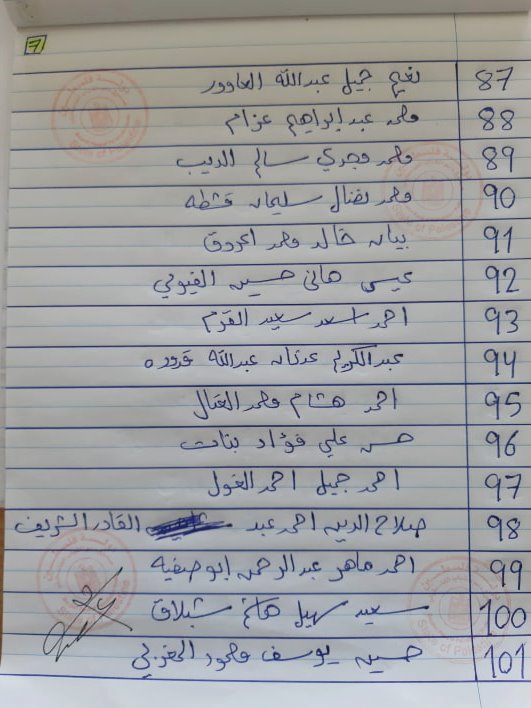 7
87 نعيم جميل عبدالله العاوور
88 محمد عبد ابراهيم عزام
89 محمد مجدي سالم الديب
90 محمد نضال سليمان قشطه
91 بيان خالد محمد اعروق
92 عيسى هاني حسين الفيومي
93 احمد اسعد سعيد القرم
94 عبدالكريم عدنان عبدالله قروره
95 احمد هشام محمد العتال
96 حسن علي فؤاد بنات
97 احمد جميل احمد الغول
98 صلاح الدين احمد عبد القادر الشريف
99 احمد ماهر عبدالرحمن ابوصفيه
100 سعيد سهيل هاشم شبلاق
101 حسين يوسف محمود المغربي
State of Palestine